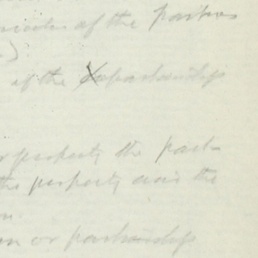 of the parties
of the partnership
property the part-
the property and the
or partnership